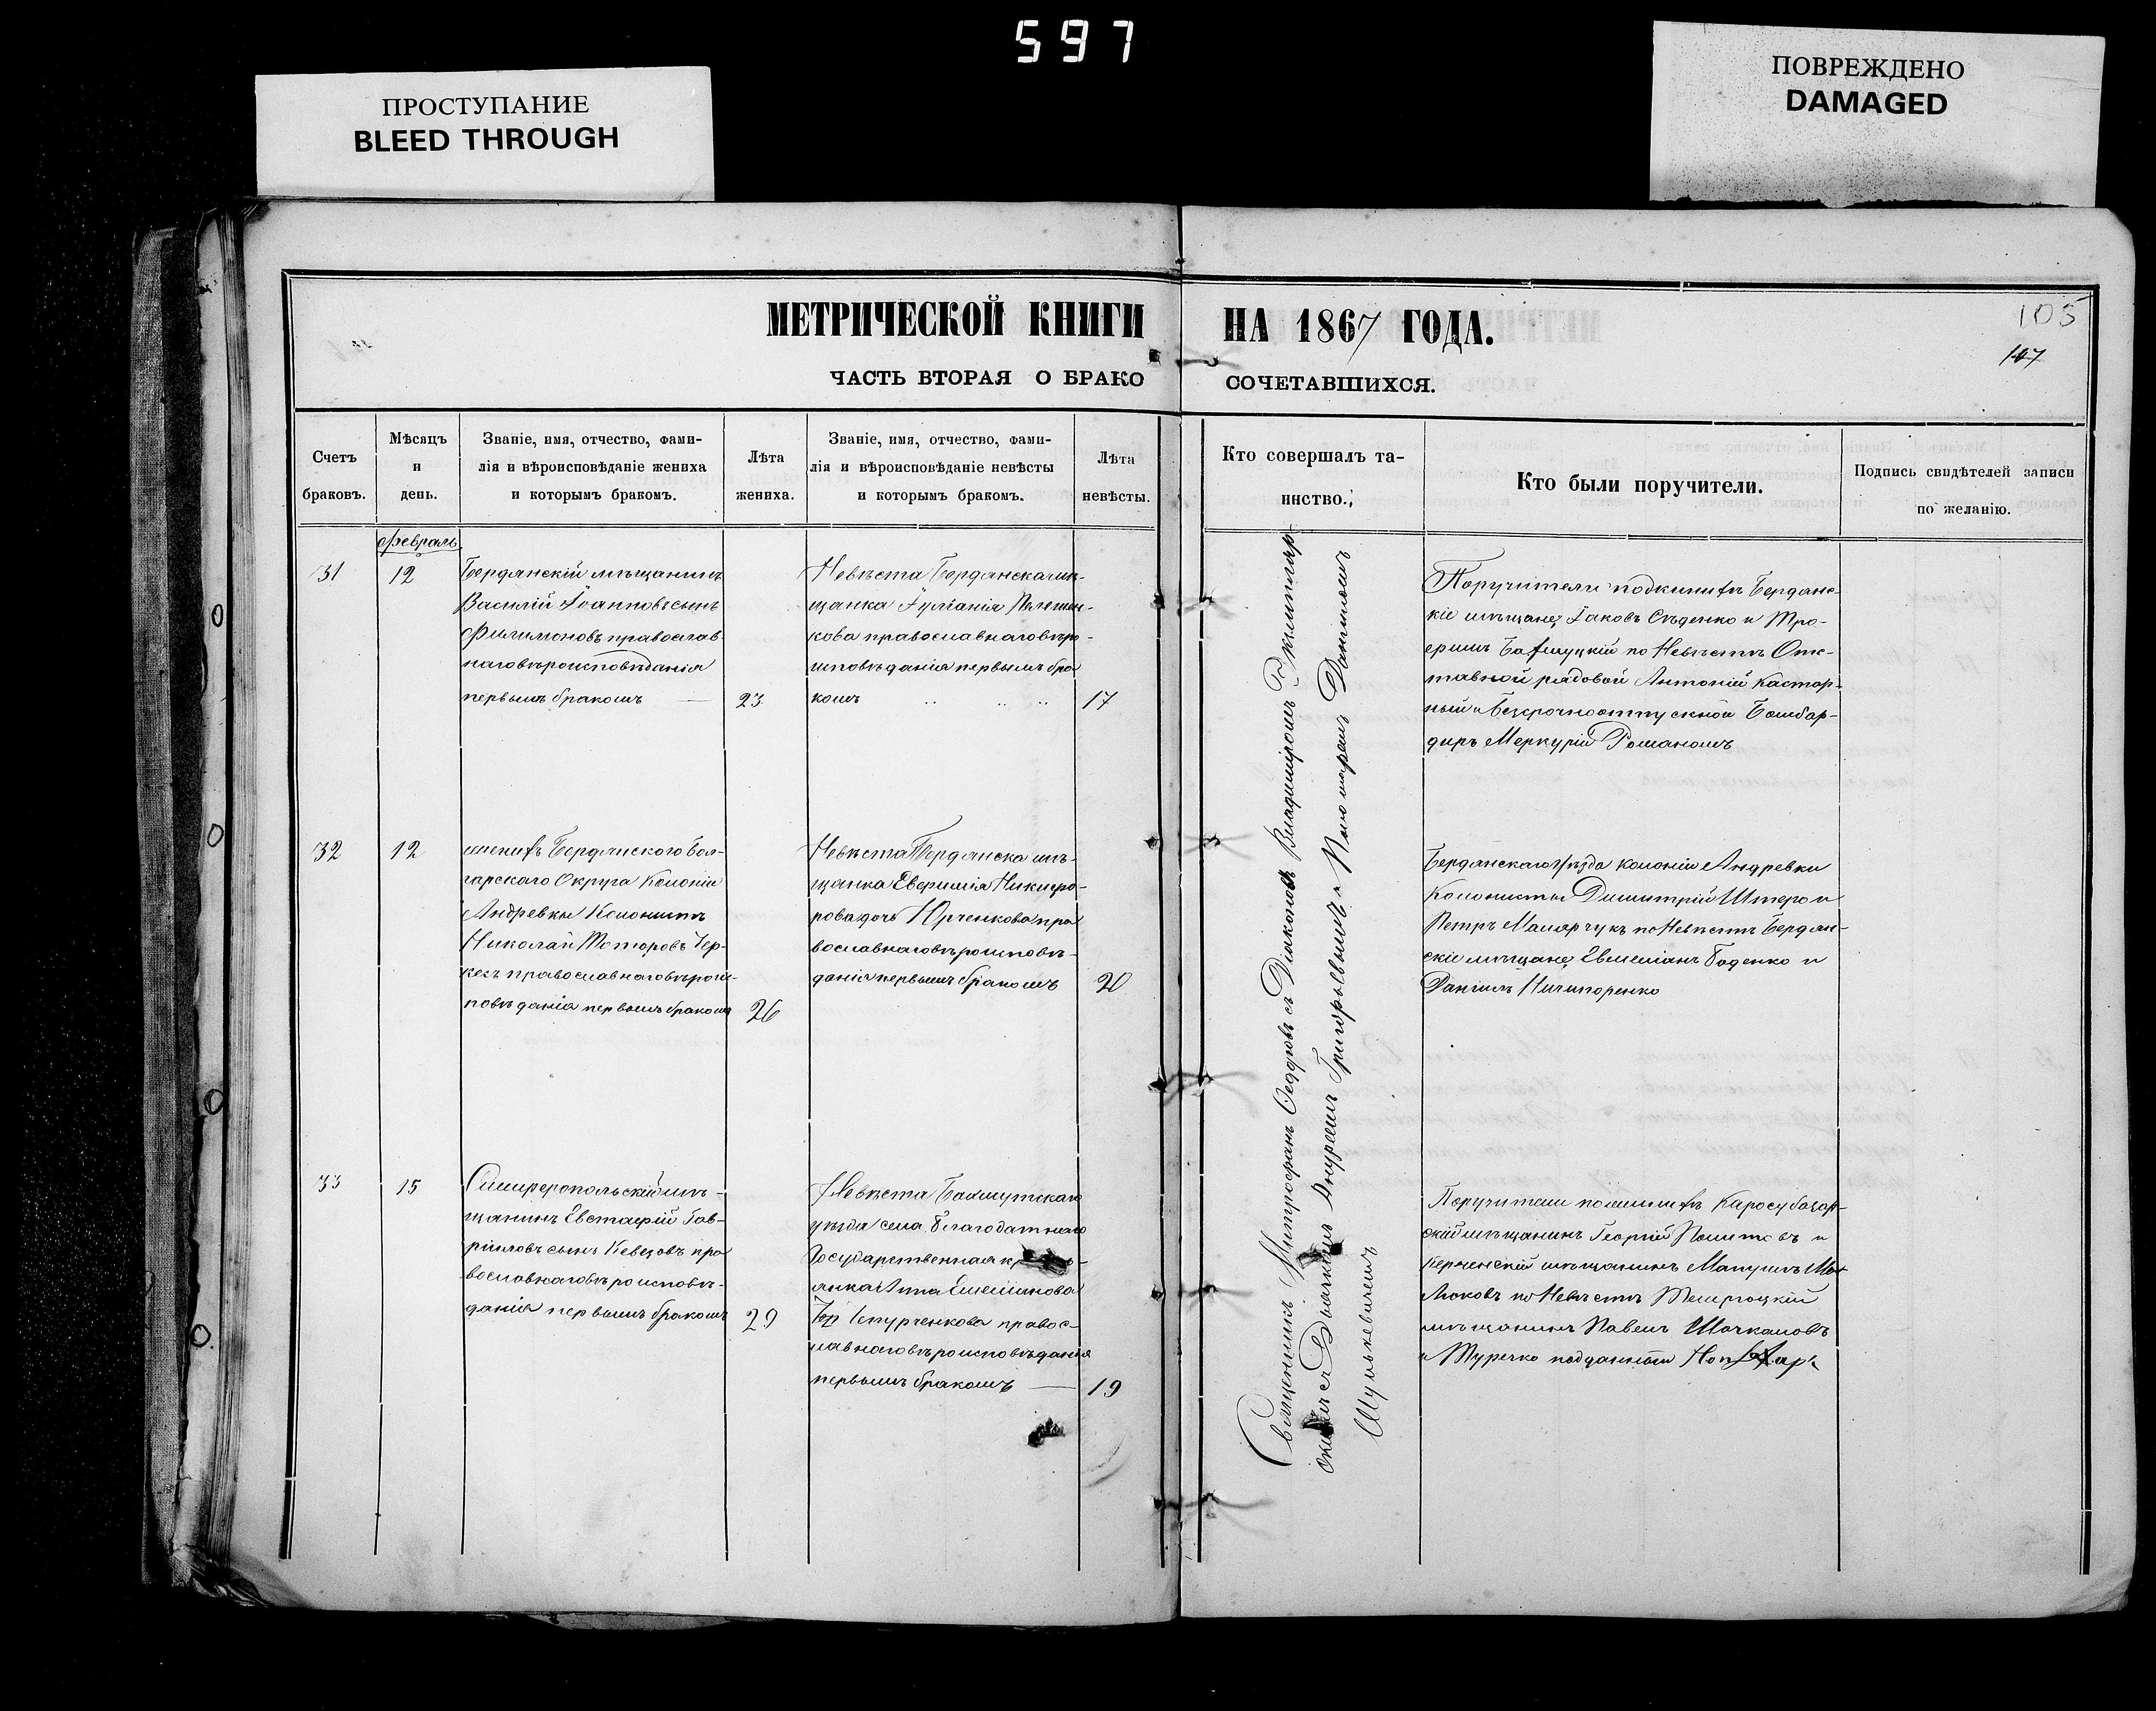 597
ПРОСТУПАНИЕ
BLEED THROUGH
ПОВРЕЖДЕНО
DAMAGED
МЕТРИЧЕСКОЙ КНИГИ НА 1867 ГОДА.
105
147
ЧАСТЬ ВТОРАЯ О БРАКО СОЧЕТАВШИХСЯ.
Счетъ
браковъ.
Мѣсяцъ
и
день.
Званіе, имя, отчество, фами-
лія и вѣроисповѣданіе жениха
и которымъ бракомъ.
Лѣта
жениха.
Званіе, имя, отчество, фами-
лія и вѣроисповѣданіе невѣсты
и которымъ бракомъ.
Лѣта
невѣсты.
Кто совершалъ та-
инство.
Кто были поручители.
Подпись свидѣтелей записи
по желанію.
Февраль
31
12
Бердянскій мѣщанинъ
Василій Іоанновъ сынъ
Филимоновъ православ
наго вѣроисповѣданія
первымъ бракомъ
23
Невѣста Бердянская мѣ-
щанка Іуліанія
кова православнаго вѣро-
исповѣданія первымъ бра
комъ
17
Поручители по жениху Бердянс-
кіе мѣщане, Іаковъ Сѣденко и Тро-
фимъ по Невѣстѣ Отс-
тавной рядовой Антоній Кастор-
ный и безсрочноотпускной Бомбар-
диръ Меркурій
32
12
жених Бердянского Бол-
гарскаго Округа Колоніи
Андревки Колонистъ
Николай Тодоровъ Чер-
кезъ православнаго вѣроис-
повѣданія первымъ бракомъ
26
Невѣста Бердянска мѣ-
щанка Евфимія Никифо-
рова дочь Юрченкова пра
вославнаго вѣроисповѣ-
данія первымъ бракомъ
20
Бердянскаго Уѣзда колоніи Андревки
Колонисты Димитрій Штерои
Петръ Маларчукъ по Невѣстѣ Бердян-
скіе мѣщане, Евмеміанъ Боденко и
Даніилъ Ничипоренко
33
15
Симферопольскій мѣ-
щанинъ Евстафій Гав-
ріиловъ сынъ Кевцовъ пра
вославнаго вѣроисповѣ-
данія первымъ бракомъ
29
Невѣста Бахмутскаго
уѣзда села Благодатнаго
Государственная
янка Анна Емеліанова
Чепурченкова правос-
лавнаго вѣроисповѣданія
первымъ бракомъ
19
Поручители по жениху Каросубазар-
скій мѣщанинъ Георгій Политовъ и
Керченскій мѣщанинъ
по Невѣстѣ
мѣщанинъ Павелъ Шачкановъ
и Турецко подданный
Священникъ Митрофанъ Ѳедоровъ съ Діакономъ Владиміромъ
Дьячкомъ Андреемъ Григорьевымъ и Пономаремъ
Шулькевичемъ